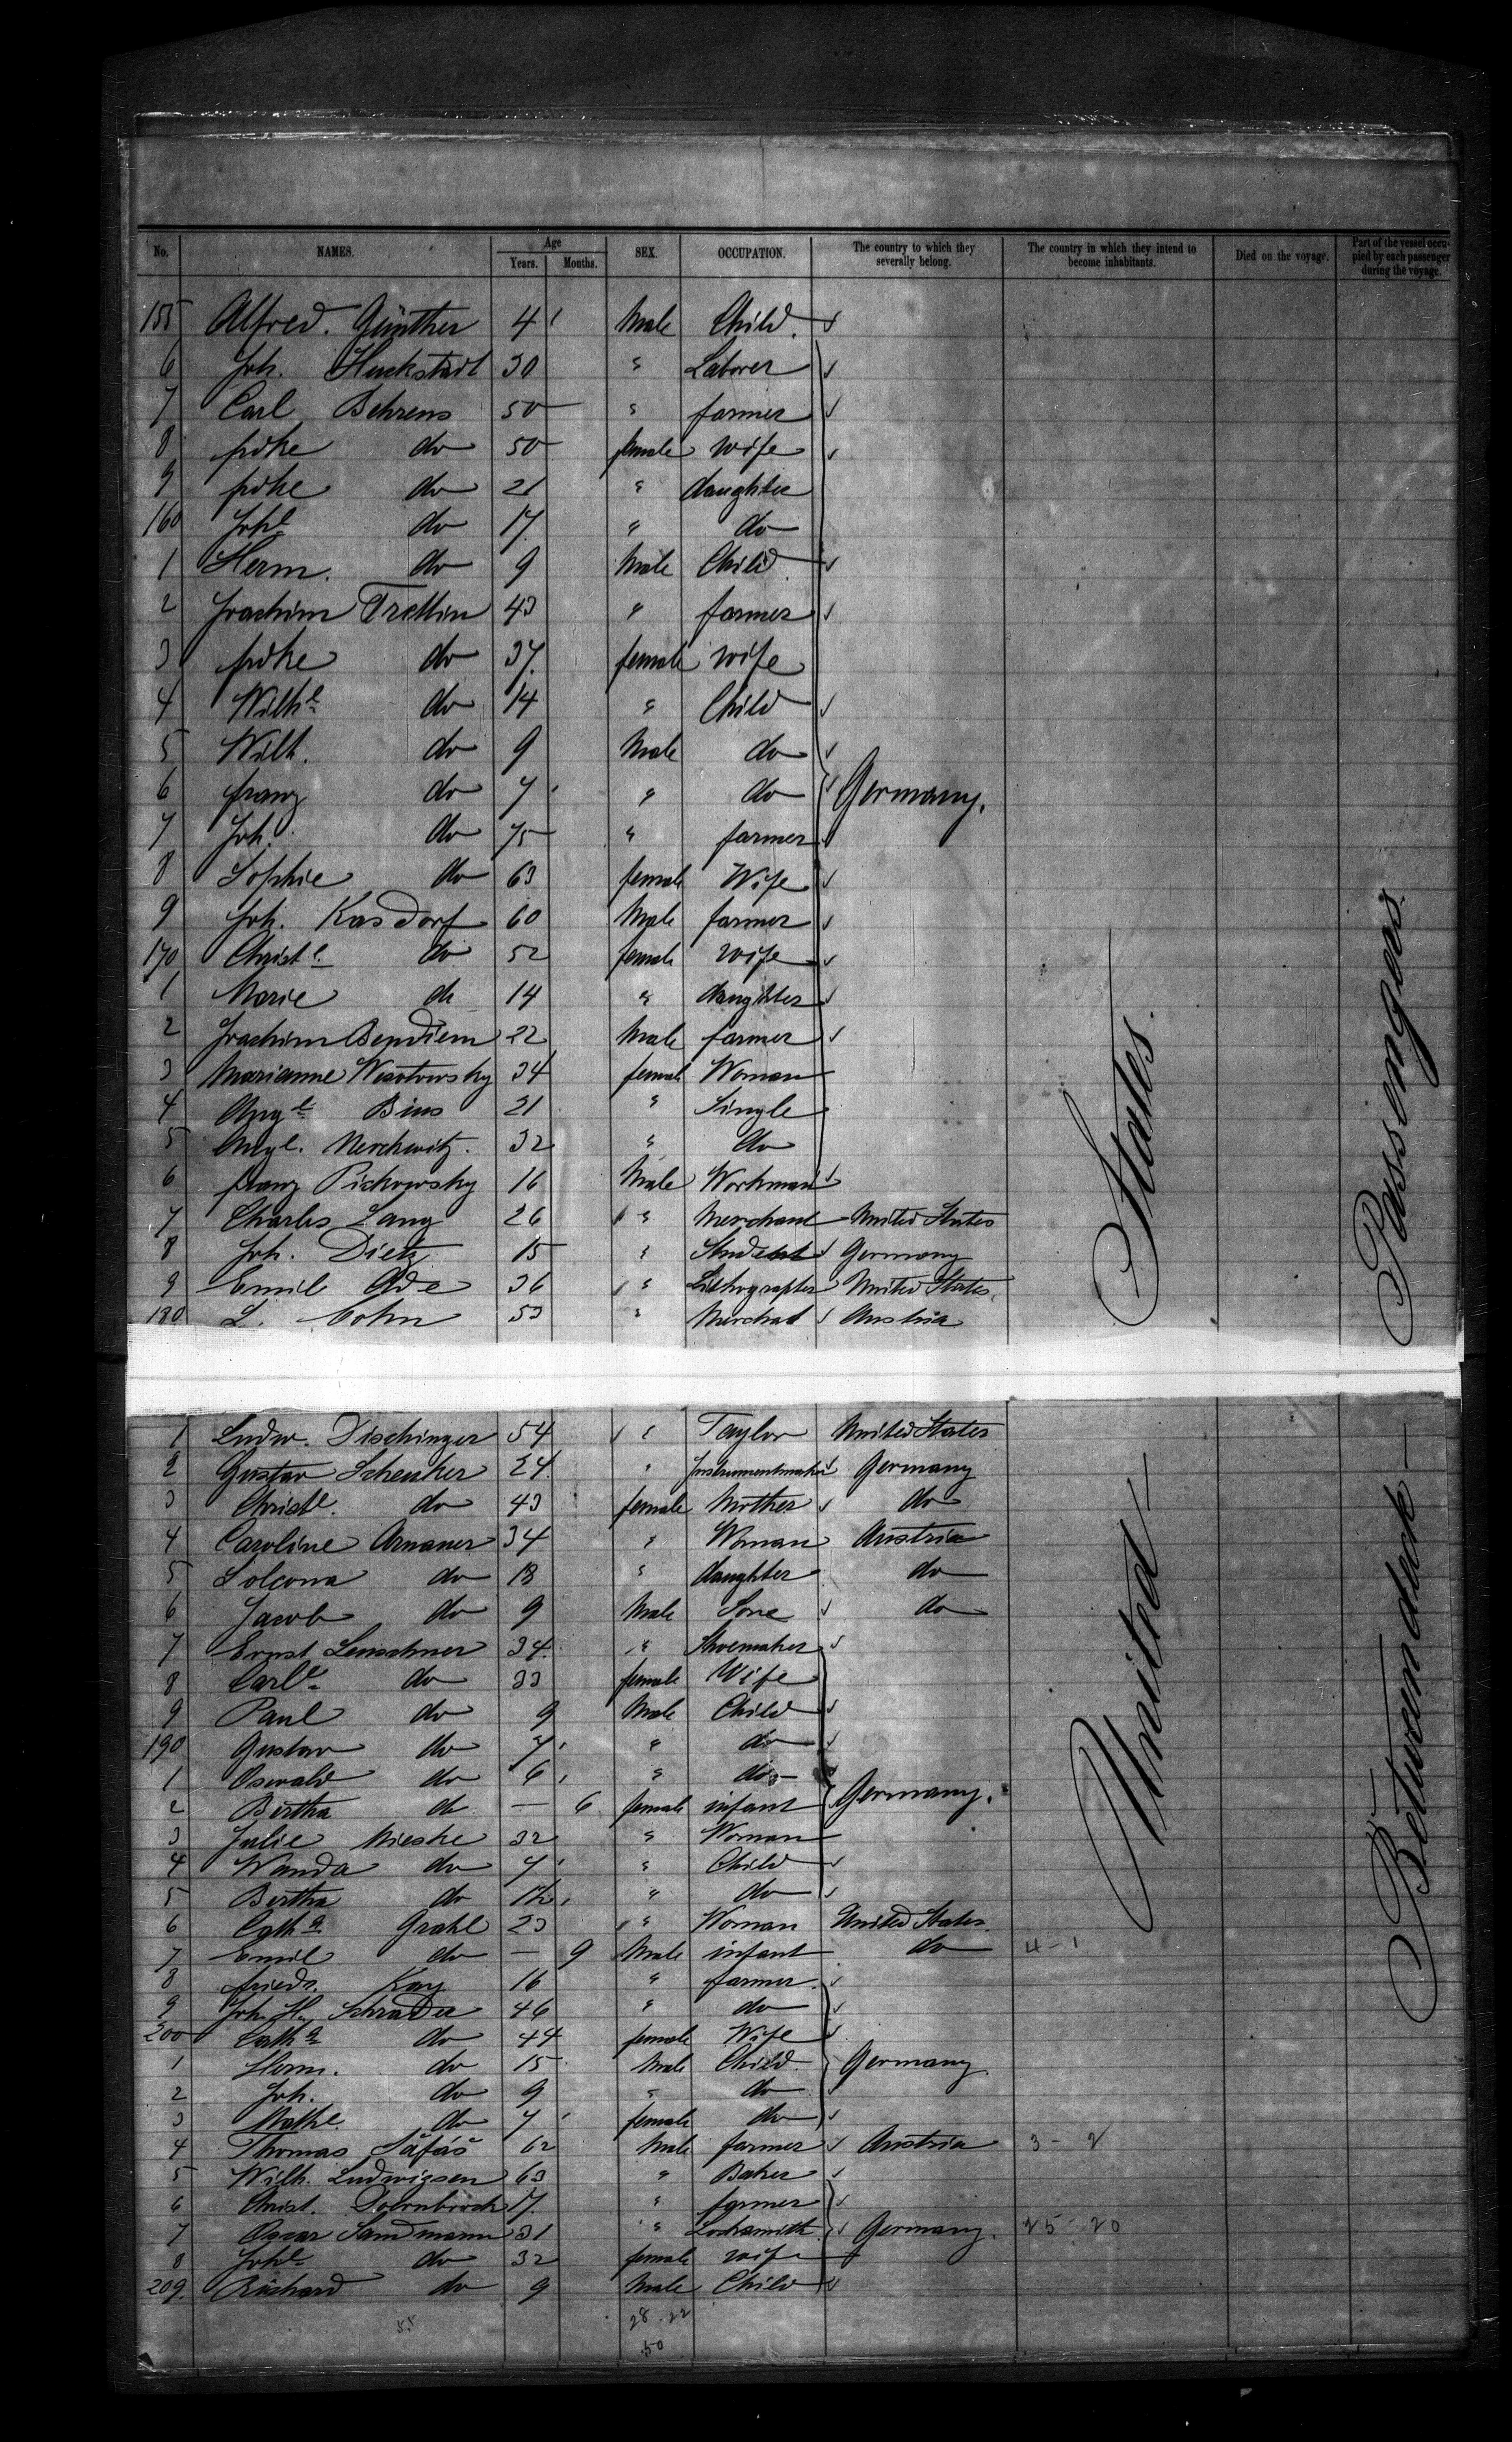 No. NAMES. Age Years. Months. SEX. OCCUPATION. The country to which they severally belong. The country in which they intend to become inhabitants. Died on the voyage. Part of the vessel occupied by each passenger during the voyage.
155 Alfred. Günther 4 Male Child.
6 Joh. Huckstädt 30 " Laborer
7 Carl Behrens 50 " farmer
8 do 50 female wife
9 do 21 " daughter
160 Joh.e do 17 " do
1 Herm. do 9 Male Child
2 Joachim Trettin 43 " farmer
3 do 37 female wife
4 Wilh.e do 14 " Child
5 Wilh. do 9 Male do
6 franz do 7 " do Germany.
7 Joh. do 75 " farmer
8 Sophie do 63 female Wife
9 Joh. Kasdorf 60 Male farmer
170 Christ.e do 52 female wife
1 Marie do 14 " daughter
2 Joachim 22 Male farmer
3 Marianne 34 female Woman
4 21 " Single
5 32 " do
6 franz 16 Male Workman
7 Charles Lang 26 " Merchant United States
8 Joh. Dietz 15 " Student Germany
9 Emil Ade 36 " Lithographer United States
180 L. Cohn 53 " Merchat Austria
1 Ludw. Dischinger 54 " Taylor United States
2 Gustav Schenker 24 " Instrumentmaker Germany
3 Christ.e do 43 female Mother do
4 Caroline 34 " Woman Austria
5 do 18 " daughter do
6 Jacob do 9 Male Sone do
7 Ernst Leuschner 34 " Shoemaker
8 Carl.e do 33 female Wife
9 Paul do 9 Male Child
190 Gustav do 7 " do
1 Oswald do 6 " do
2 Bertha do — 6 female infant Germany.
3 Julie Mieske 32 " Woman
4 Wanda do 7 " Child
5 Bertha do " do
6 Cath.a Grahl 23 " Woman United States
7 Emil do — 9 Male infant do 4-1
8 friedr. Kay 16 " farmer
9 Joh. H. Schrader 46 " do
200 Cath.a do 44 female Wife
1 Herm. do 15 Male Child Germany
2 Joh. do 9 " do
3 Mathe. do 7 female do
4 Thomas 62 Male farmer Austria 3-2
5 Wilh. Ludwigsen 63 " Baker
6 Christ. 17 " farmer
7 Oscar Sandmann 31 " Locksmith Germany. 25-20
8 Joh.e do 32 female wife
209. Richard do 9 Male Child
55 28-22
50
United States.
Betweendeck Passengers